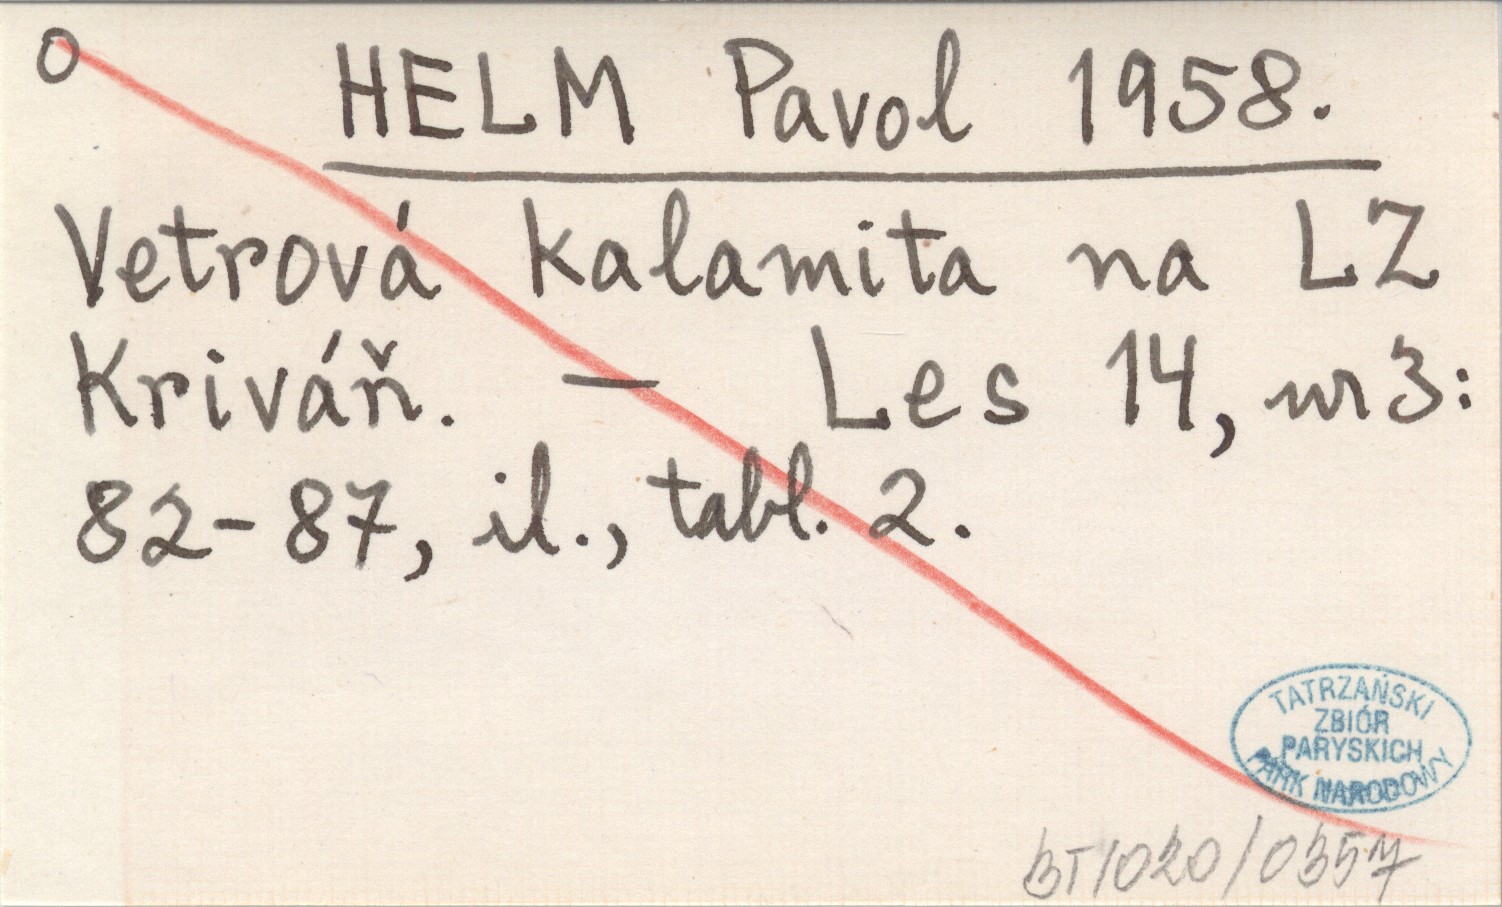 O
HELM Pavol 1958.
Vetrová kalamita na LZ
Kriváň. — Les 14, nr 3:
82-87, il., tabl. 2.
TATRZAŃSKI
ZBIÓR
PARYSKICH
PARK NARODOWY
BT/020/0357